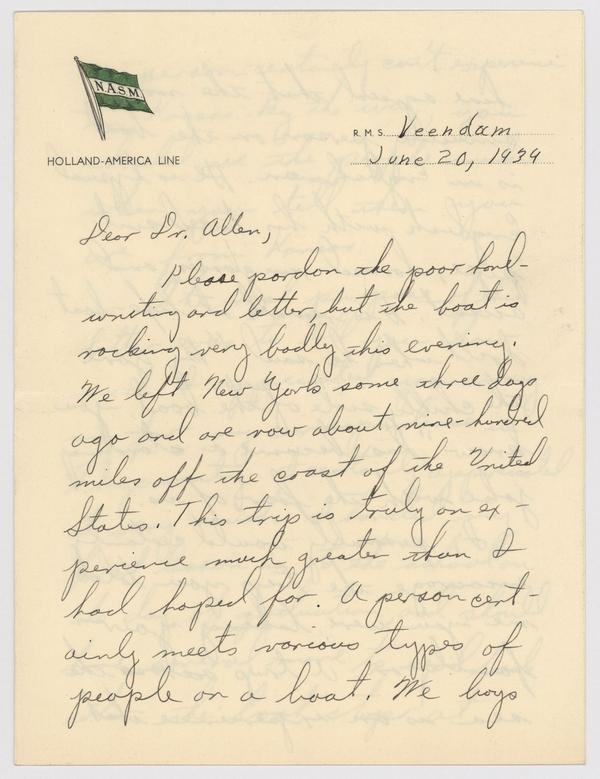 N.A.S.M.
HOLLAND-AMERICA LINE
R.M.S. Veendam
June 20, 1939
Dear Dr. Allen,
Please pardon the poor hand-
writing and letter, but the boat is
rocking very badly this evening.
We left New York some three days
ago and are now about nine-hundred
miles off the coast of the United
States. This trip is truly an ex-
perience much greater than I
had hoped for. A person cert-
ainly meets various types of
people on a boat. We boys